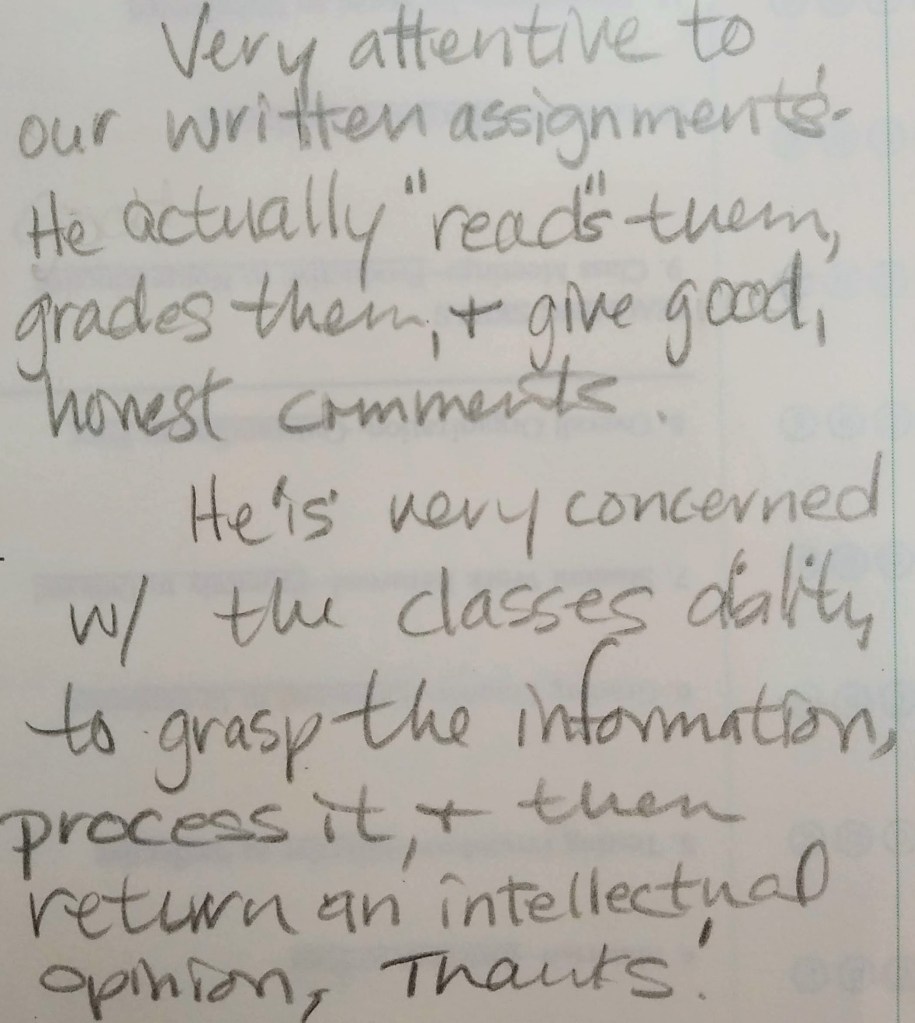 Very attentive to
our written assignments.
He actually "reads" them,
grades them, + give good,
honest comments.
He is very concerned
w/ the classes ability
to grasp the information,
process it, + then
return an intellectual
opinion, Thanks!